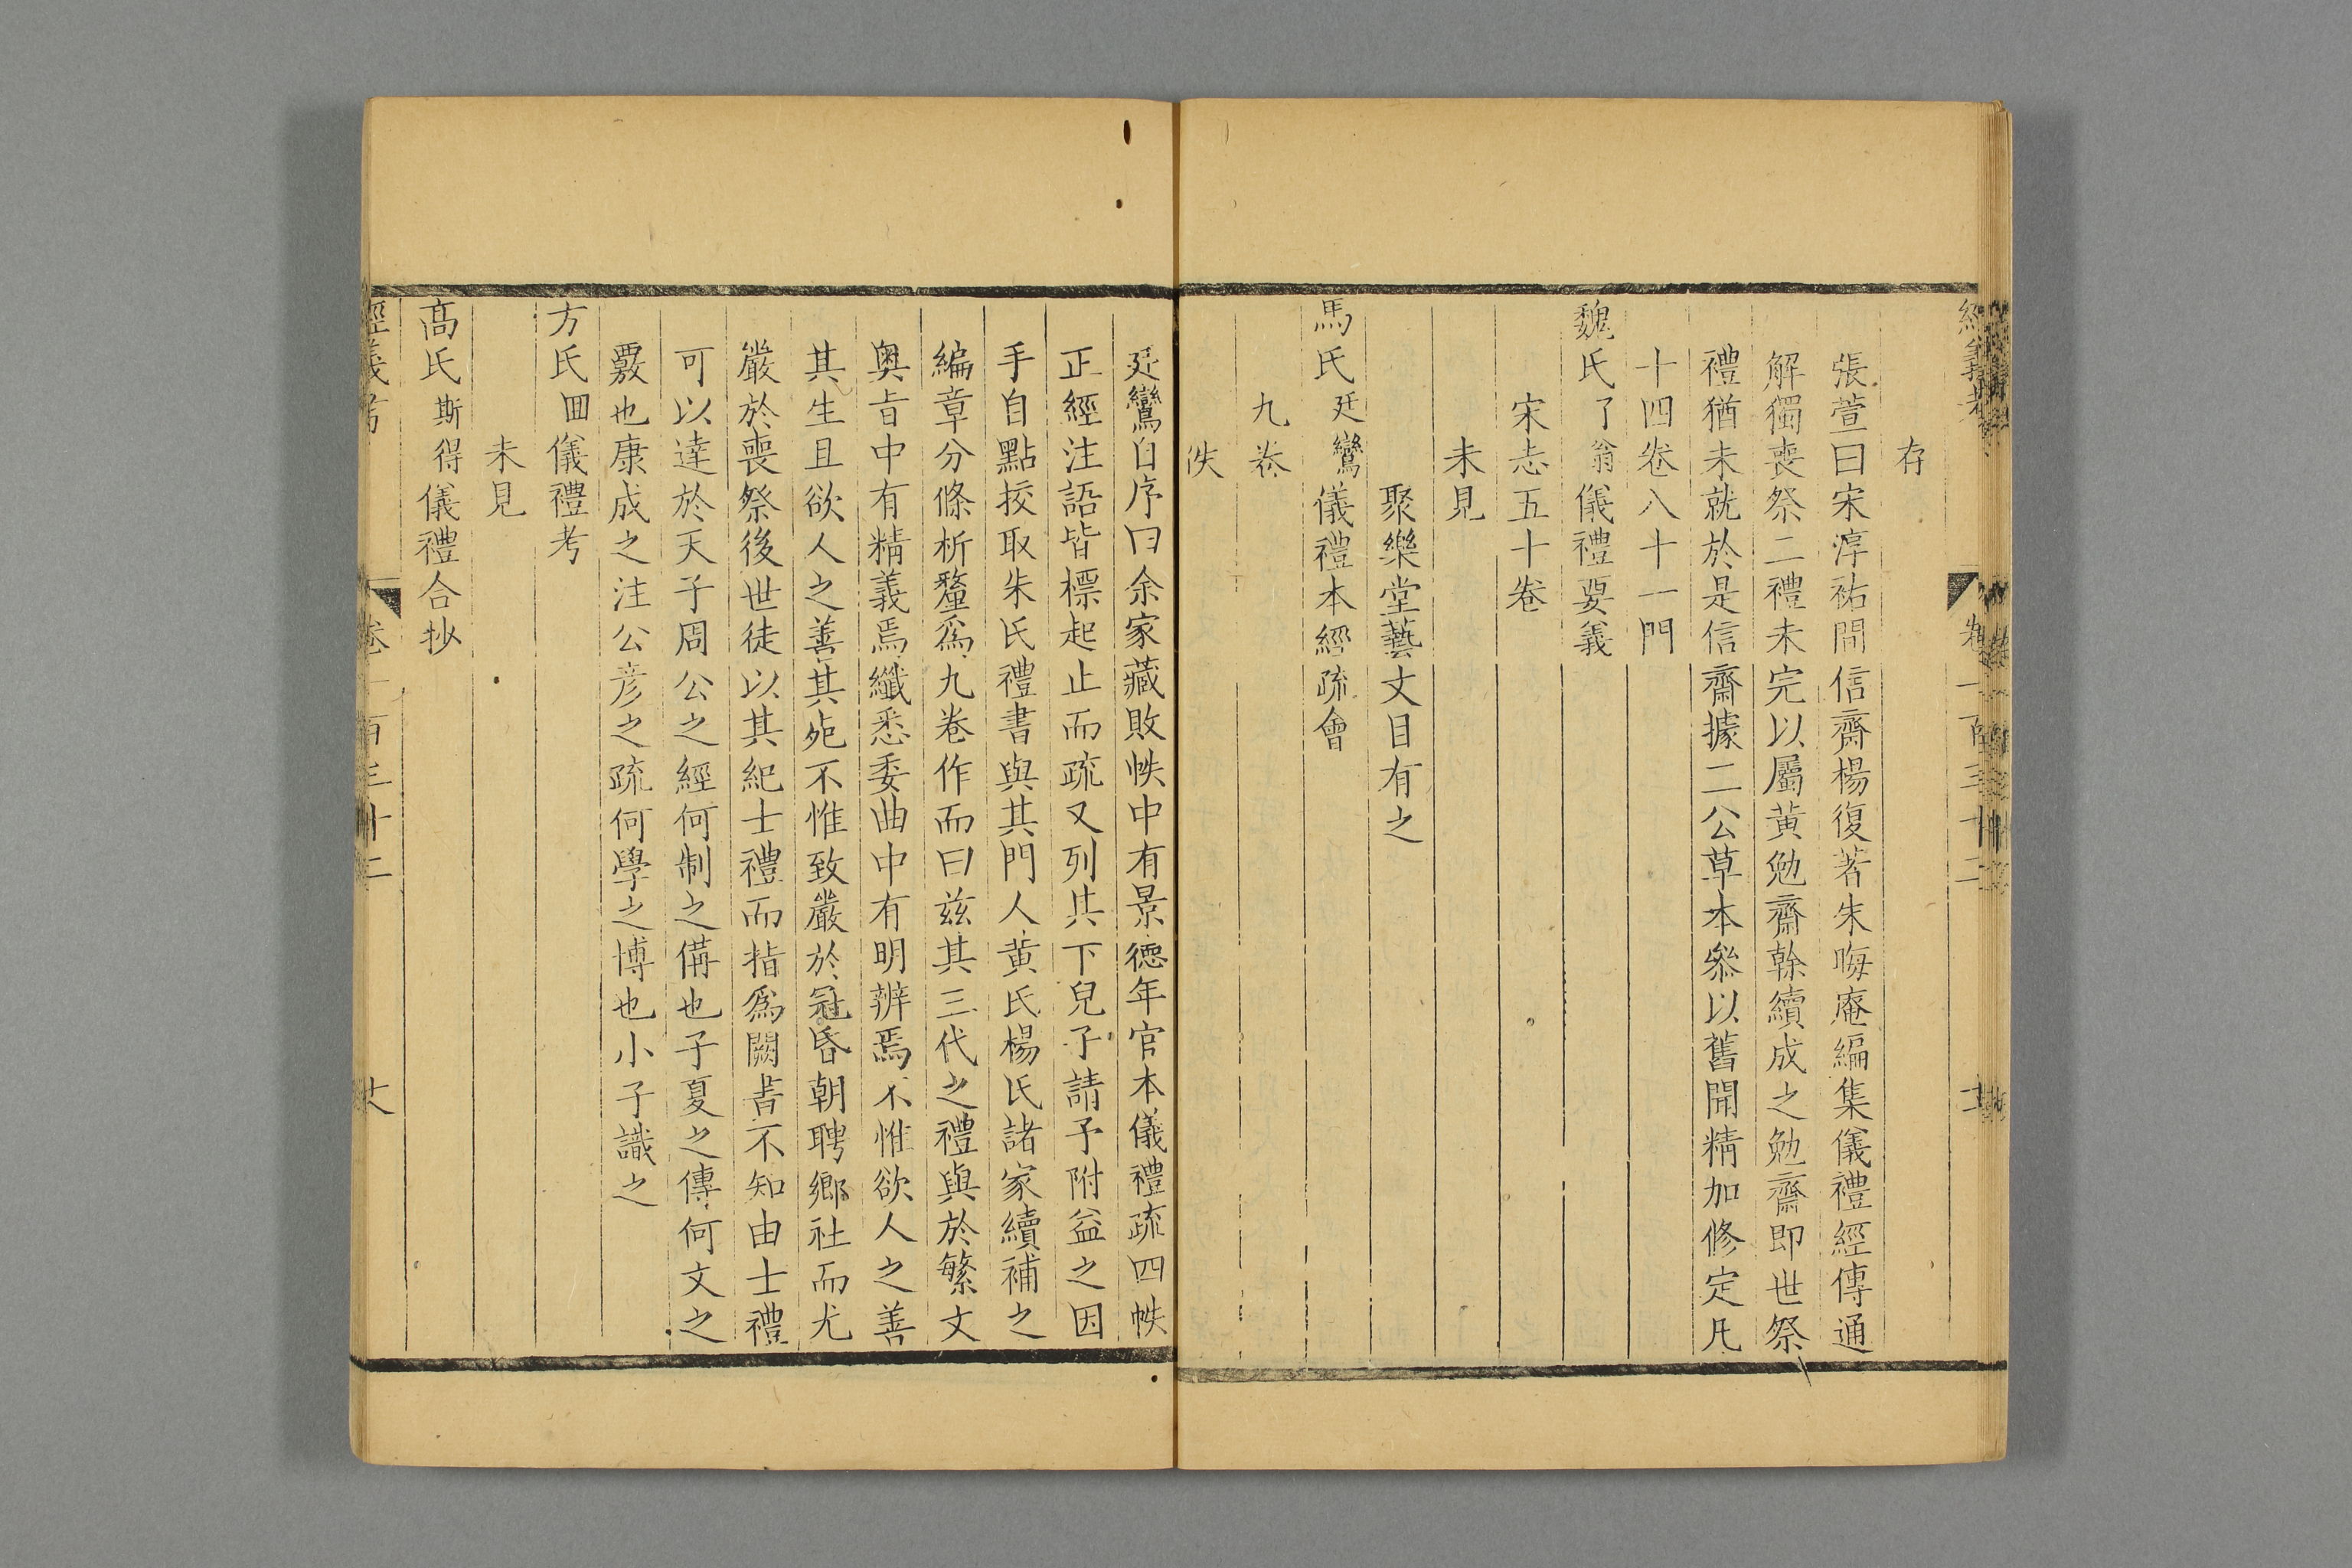 經義考 卷一百三十二
存
張萱曰宋淳祐間信齋楊復著朱晦庵編集儀禮經傳通
解獨喪祭二禮未完以屬黃勉齋榦續成之勉齋即世祭
禮猶未就於是信齋據二公草本叅以舊聞精加修定凡
十四卷八十一門
魏氏了翁儀禮要義
宋志五十卷
未見
聚樂堂藝文目有之
馬氏廷鸞儀禮本經疏會
九卷
佚
廷鸞自序曰余家藏敗帙中有景德年官本儀禮疏四帙
正經注語皆標起止而疏又列其下兒子請予附益之因
手自點挍取朱氏禮書與其門人黃氏楊氏諸家續補之
編章分條析釐爲九卷作而曰兹其三代之禮與於繁文
奥旨中有精義焉纖悉委曲中有明辨焉不惟欲人之善
其生且欲人之善其死不惟致嚴於冠昏朝聘鄉社而尤
嚴於喪祭後世徒以其紀士禮而指爲闕書不知由士禮
可以達於天子周公之經何制之備也子夏之傳何文之
覈也康成之注公彦之疏何學之博也小子識之
方氏回儀禮考
未見
高氏斯得儀禮合抄
經義考 卷一百三十二